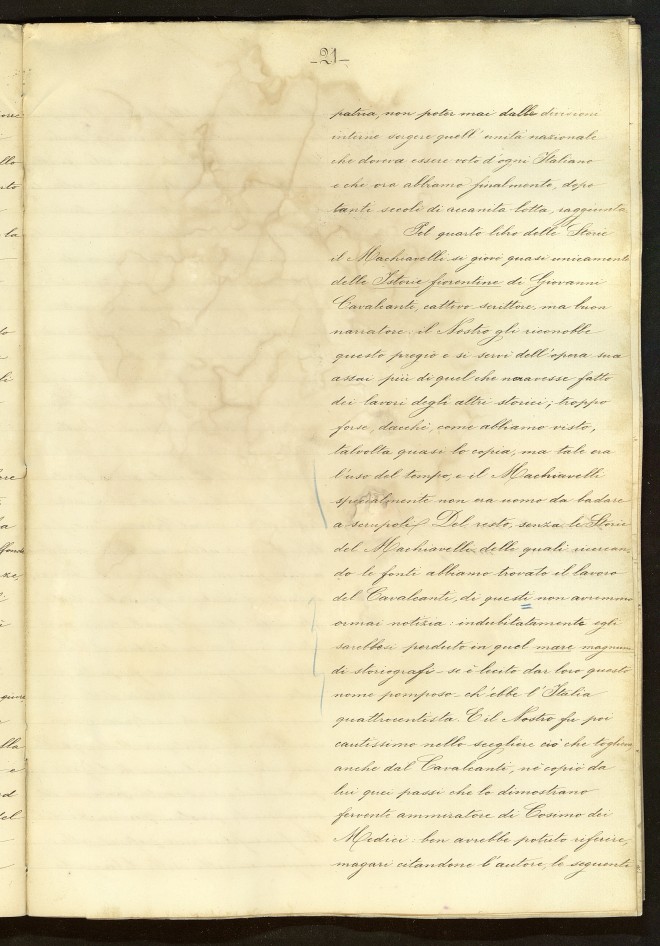 -21-
patria, non poter mai dalle divisioni
interne sorgere quell'unità nazionale
che doveva essere voto d'ogni Italiano
e che ora abbiamo finalmente, dopo
tanti secoli di accanita lotta, raggiunta.
Pel quarto libro delle Storie
il Machiavelli si giovò quasi unicamente
delle Istorie fiorentine di Giovanni
Cavalcanti, cattivo scrittore, ma buon
narratore: il Nostro gli riconobbe
questo pregio e si servì dell'opera sua
assai più di quel che non avesse fatto
dei lavori degli altri storici; troppo
forse, dacchè, come abbiamo visto,
talvolta quasi lo copia, ma tale era
l'uso del tempo, e il Machiavelli
specialmente non era uomo da badare
a scrupoli. Del resto, senza le Storie
del Machiavelli, delle quali ricercan-
do le fonti abbiamo trovato il lavoro
del Cavalcanti, di questi non avremmo
ormai notizia: indubitatamente egli
sarebbesi perduto in quel mare magnum
di storiografi - se è lecito dar loro questo
nome pomposo - ch'ebbe l'Italia
quattrocentista. E il Nostro fu poi
cautissimo nello scegliere ciò che toglieva
anche dal Cavalcanti, nè copiò da
lui quei passi che lo dimostrano
fervente ammiratore di Cosimo dei
Medici: ben avrebbe potuto riferire,
magari citandone l'autore, le seguenti